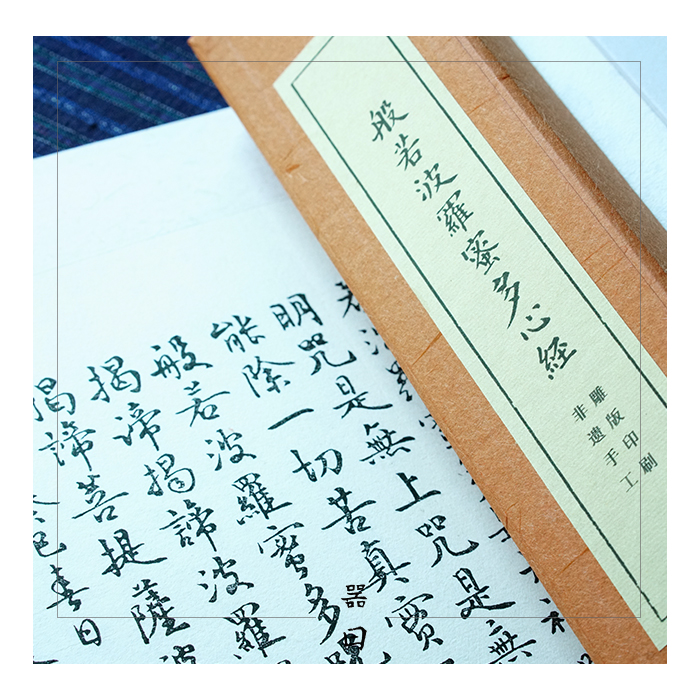 般若波羅蜜多心経
雕版印刷
非遗手工
明咒是無上咒是無
能除一切苦真實
般若波羅蜜多咒
揭諦揭諦波羅
揭諦菩提薩
春日
器